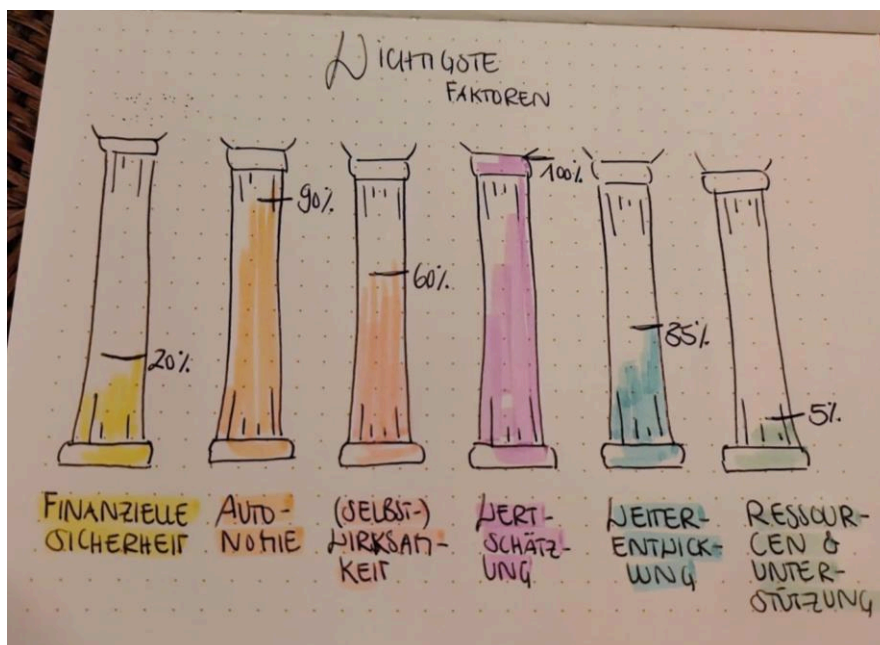 WICHTIGSTE
FAKTOREN
20%
90%
60%
100%
35%
5%
FINANZIELLE
SICHERHEIT
AUTO-
NOMIE
(SELBST-)
WIRKSAM-
KEIT
WERT-
SCHÄTZ-
UNG
WEITER-
ENTWICK-
LUNG
RESSOUR-
CEN &
UNTER-
STÜTZUNG